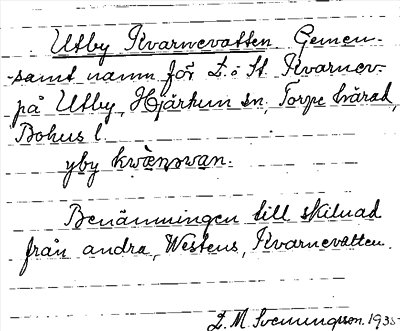 Utby Kvarnevatten Gemen-
samt namn för L. o St. Kvarnev.
på Utby, Hjärtum sn, Torpe härad,
Bohus l.
yby
Benämningen till skilnad
från andra, Westens, Kvarnevatten.
L. M. Svenungsson. 1935